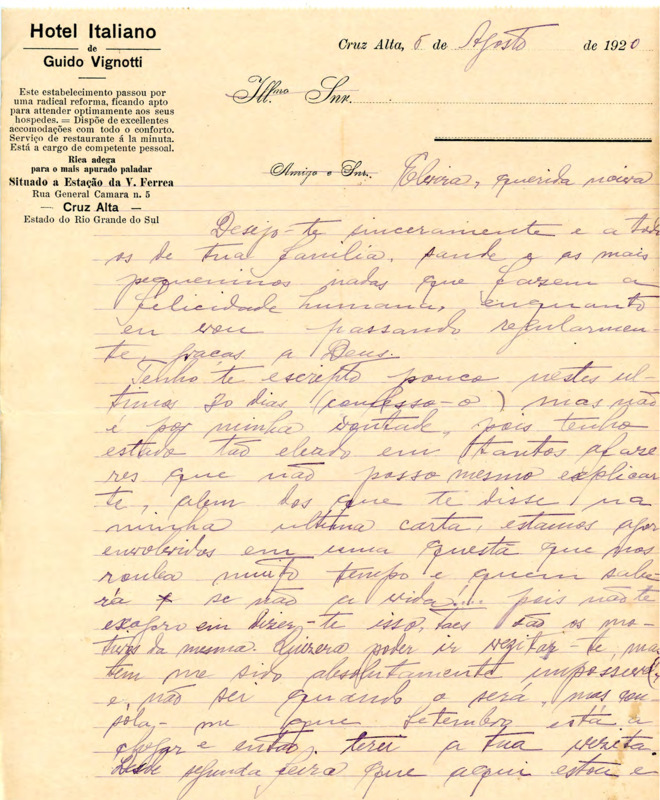 Hotel Italiano
de
Guido Vignotti
Este estabelecimento passou por
uma radical reforma, ficando apto
para attender optimamente aos seus
hospedes. = Dispõe de excellentes
accomodações com todo o conforto.
Serviço de restaurante á la minuta.
Está a cargo de competente pessoal.
Rica adega
para o mais apurado paladar
Situado a Estação da V. Ferrea
Rua General Camara n. 5
Cruz Alta
Estado do Rio Grande do Sul
Cruz Alta, 5 de Agosto de 1920
Ill.mo Snr.
Amigo e Snr. Elvira, querida noiva
Desejo-te sinceramente e a tod
os de tua familia, saude e os mais
pequeninos nadas que fazem a
felicidade humana, enquanto
eu vou passando regularmen-
te, graças a Deus.
Tenho te escripto pouco nestes ul-
timos 30 dias (confesso-o) mas não
é por minha vontade, pois tenho
estado tão eleado em tantos afaze
res que não posso mesmo explicar
te, alem dos que te disse na
minha ultima carta, estamos agor
envolvidos em uma questã que nos
rouba muito tempo e quem sabe-
rá se não a vida... pois não te
exagero em dizer-te isso, taes são os mo-
tivos da mesma. Quizera poder ir vezitar-te, mas
tem me sido absolutamente impossivel
e, não sei quando o será, mas con
sola-me que Setembro está a
chegar e então, terei a tua vezita.
Desde segunda feira que aqui estou e